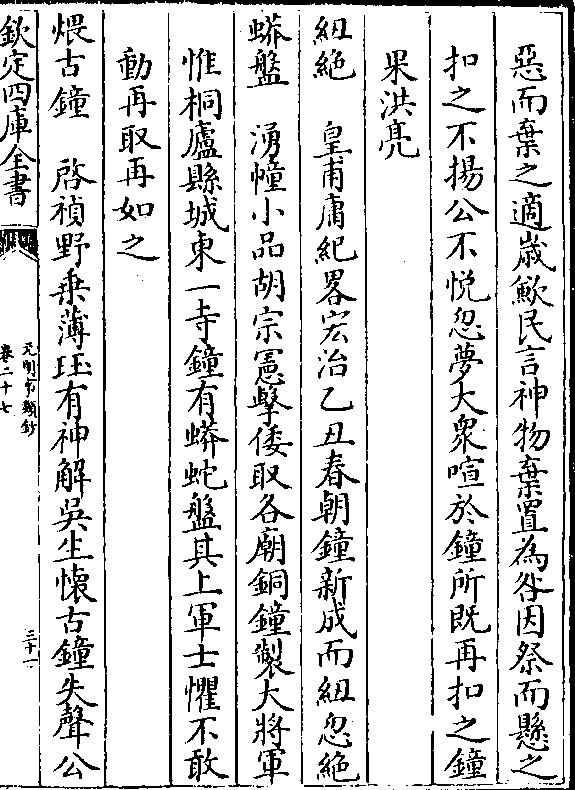 惡而棄之適歲歉民言神物棄置為咎因祭而懸之
扣之不揚公不悅忽夢大衆喧於鐘所既再扣之鐘
果洪亮
紐絶　皇甫庸紀畧宏治乙丑春朝鐘新成而紐忽絶
蟒盤　湧幢小品胡宗憲擊倭取各廟銅鐘製大將軍
惟桐廬縣城東一寺鐘有蟒蛇盤其上軍士懼不敢
動再取再如之
煨古鐘　啓禎野乗薄珏有神解吳生懷古鐘失聲公
欽定四庫全書
元明事類鈔
卷二十七
三十一